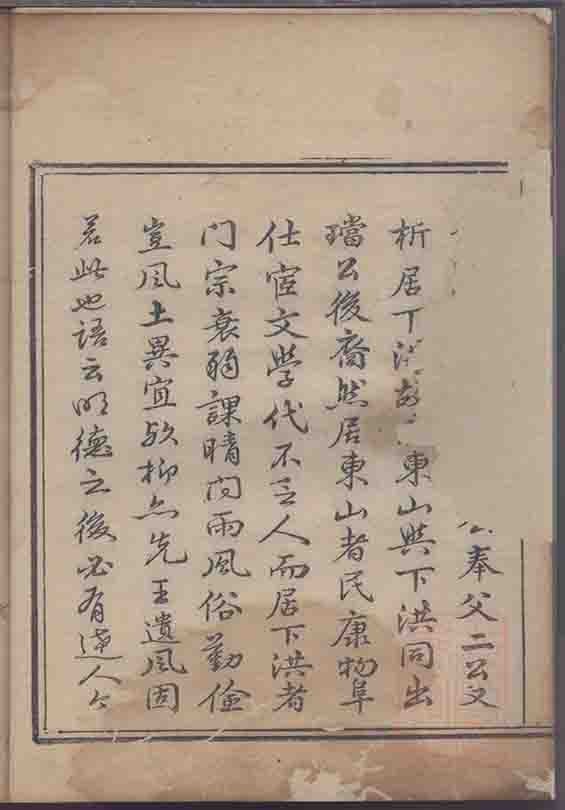 公奉父二公又
析居下洪 東山與下洪同出
璫公後裔然居東山者民康物阜
仕宦文學代不乏人而居下洪者
门宗衰弱課晴问雨風俗勤儉
豈風土異宜欤抑亦先王遺風固
若此也語云明德之後必有達人今